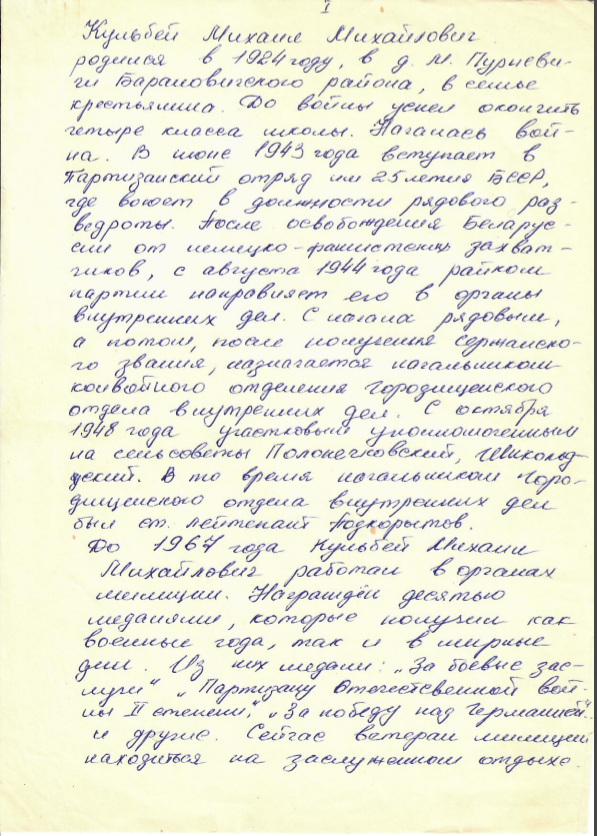 I
Кульбей Михаил Михайлович
родился в 1924 году, в д. М. Пурневи-
чи Барановичского района, в семье
крестьянина. До войны успел окончить
четыре класса школы. Началась вой-
на. В июне 1943 года вступает в
Партизанский отряд им 25 летия БССР,
где воюет в должности рядового раз-
ведроты. После освобождения Беларус-
сии от немецко-фашистских захват-
чиков, с августа 1944 года райком
партии направляет его в органы
внутренних дел. С начала рядовым,
а потом, после получения сержанско-
го звания, назначается начальником
конвойного отделения Городищенского
отдела внутренних дел. С октября
1948 года участковым уполномоченным
на сельсоветы Полонечковский,
В то время начальником Горо-
дищенского отдела внутренних дел
был ст. лейтенант Подкорытов.
До 1967 года Кульбей Михаил
Михайлович работал в органах
милиции. Награждён десятью
медалями, которые получил как
военные года, так и в мирные
дни. Из них медали: „За боевые зас-
луги" „Партизану Отечественной вой-
ны II степени", „За победу над Германией"
и другие. Сейчас ветеран милиции
находиться на заслуженном отдыхе.